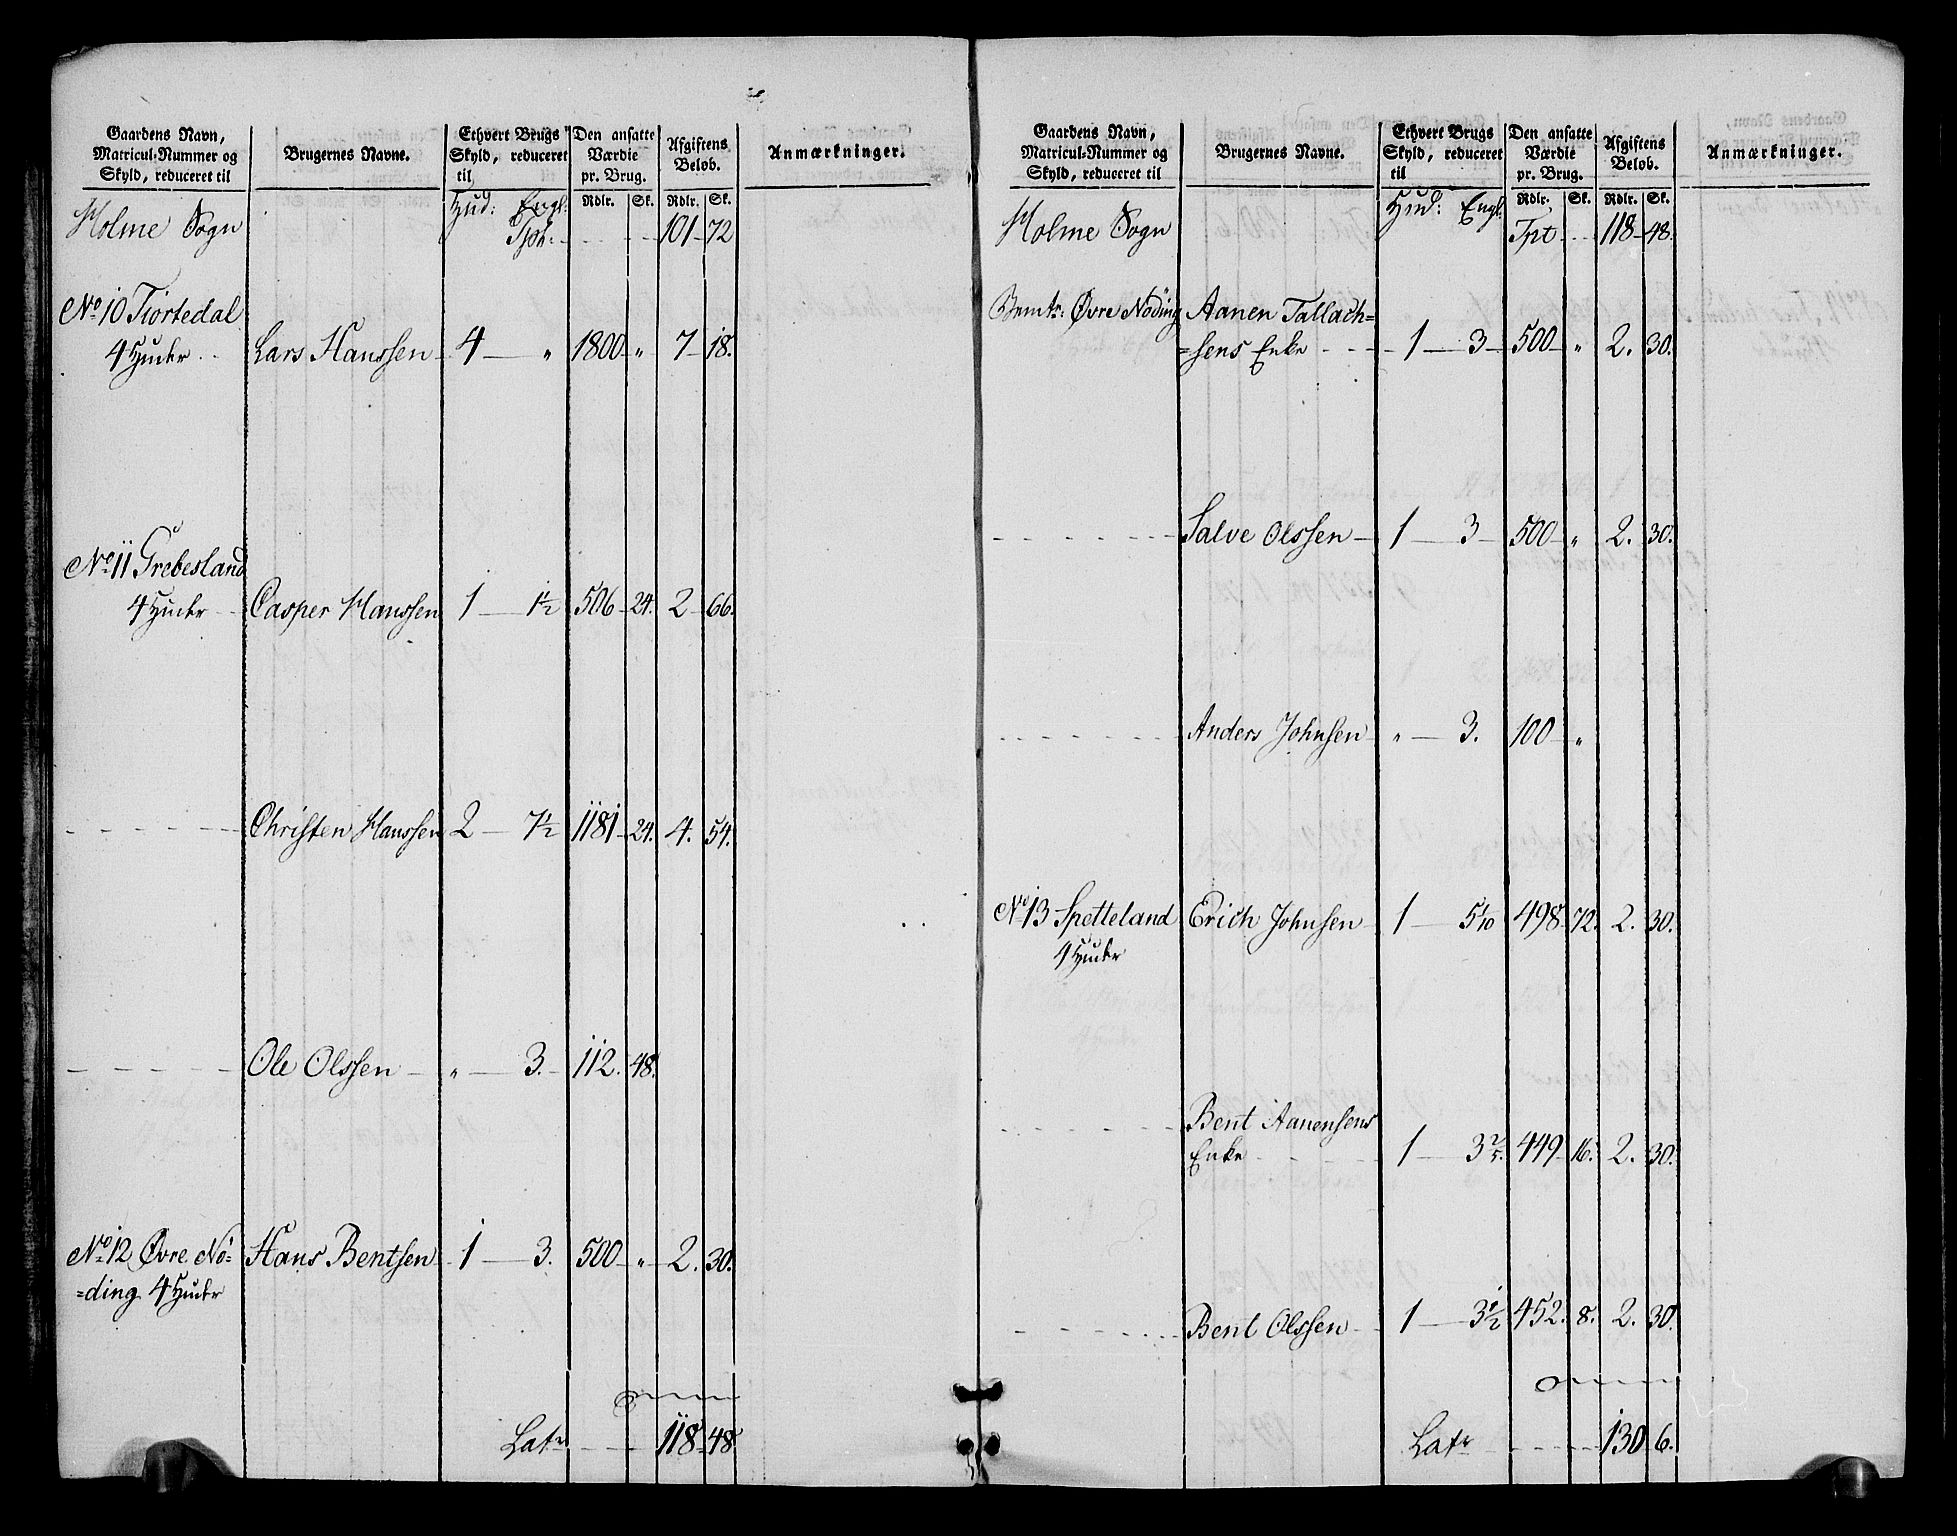 Gaardens Navn, Matricul-Nummer og Skyld, reduceret til | Brugernes Navne. | Ethvert Brugs Skyld, reduceret til | Den ansatte Værdie pr. Brug. | Afgiftens Beløb. | Anmærkninger.
Hud: Engl: Rdlr. Sk. Rdlr. Sk.
Holme Sogn Tpt: 101 72
No 10 Tiortedal
4 Huder Lars Hanssen 4 " 1800 " 7 18.
No 11 Grebesland
4 Huder Casper Hanssen 1 1½ 506 24. 2 66.
Christen Hanssen 2 7½ 1181 24. 4. 54.
Ole Olssen " 3. 112. 48.
No 12 Øvre Nö= Hans Bentsen 1 3. 500 " 2. 30.
=ding 4 Huder
Latr 118 48.
Gaardens Navn, Matricul-Nummer og Skyld, reduceret til | Brugernes Navne. | Ethvert Brugs Skyld, reduceret til | Den ansatte Værdie pr. Brug. | Afgiftens Beløb. | Anmærkninger.
Hud: Engl: Rdlr. Sk. Rdlr. Sk.
Holme Sogn Tpt 118 48.
Øvre Nöding Aanen Tallach=
=sens Enke 1 3 500 " 2. 30.
Salve Olssen 1 3 500 " 2. 30.
Anders Johnsen " 3. 100 "
No 13 Spetteland Erich Johnsen 1 5 1/10 498 72. 2. 30.
4 Huder
Bent Aanensens
Enke 1 3 2/5. 449 16. 2. 30.
Bent Olssen 1 3½ 452. 8. 2. 30.
Latr 130 6.